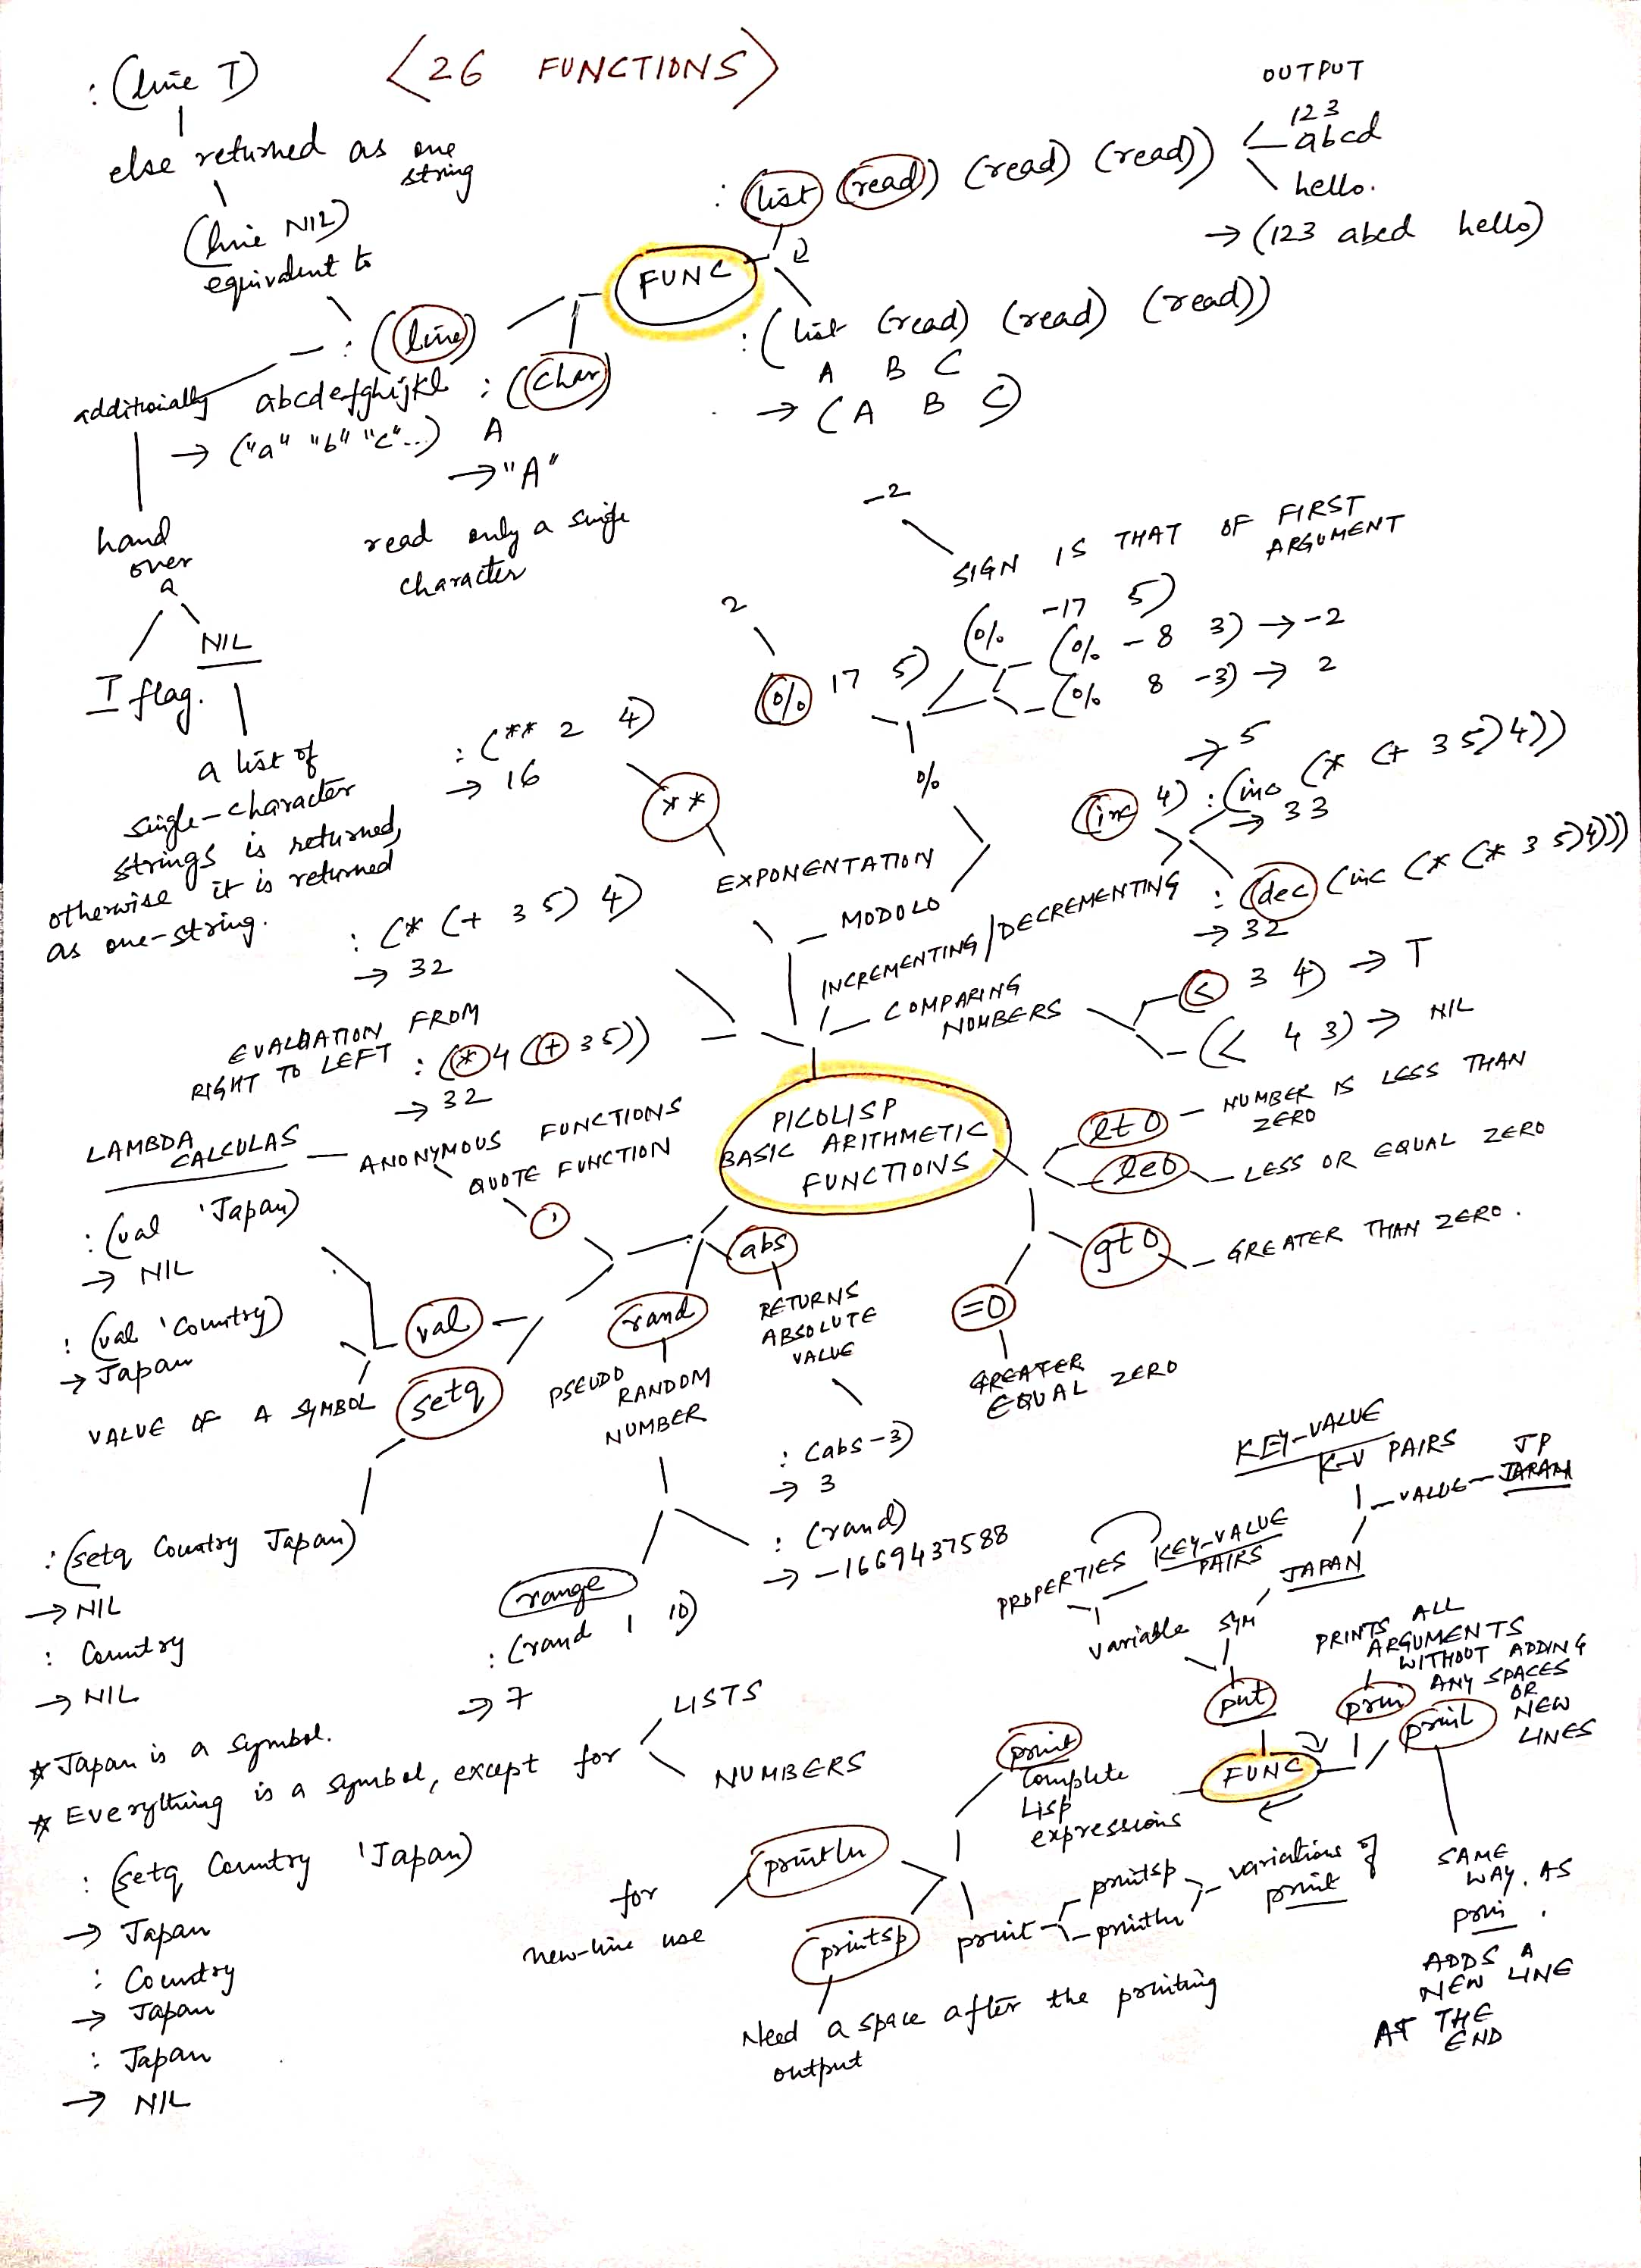 <26 FUNCTIONS>
: (line T)
else returned as one
string
(line NIL)
equivalent to
: (line)
additionally
abcdefghijkl
→ ("a" "b" "c"...)
hand
over
a
NIL
T flag.
a list of
single-character
strings is returned,
otherwise it is returned
as one-string.
FUNC
: (char)
A
→ "A"
read only a single
character
OUTPUT
: (list (read)) (read) (read))
123
abcd
hello.
→ (123 abcd hello)
: (list (read) (read) (read))
A B C
→ (A B C)
-2
SIGN IS THAT OF FIRST
ARGUMENT
2
(% 17 5)
(% -17 5)
(% -8 3) → -2
(% 8 -3) → 2
%
MODOLO
: (** 2 4)
→ 16
**
EXPONENTATION
→ 5
(inc 4) : (inc (* (+ 3 5) 4))
→ 33
: (dec (inc (* (* 3 5) 4)))
→ 32
INCREMENTING/DECREMENTING
: (* (+ 3 5) 4)
→ 32
EVALUATION FROM
RIGHT TO LEFT
: (* 4 (+ 3 5))
→ 32
COMPARING
NUMBERS
(< 3 4) → T
(< 4 3) → NIL
PICOLISP
BASIC ARITHMETIC
FUNCTIONS
lt0 - NUMBER IS LESS THAN
ZERO
le0 - LESS OR EQUAL ZERO
gt0 - GREATER THAN ZERO.
=0
GREATER
EQUAL ZERO
LAMBDA
CALCULAS - ANONYMOUS FUNCTIONS
QUOTE FUNCTION
'
: (val 'Japan)
→ NIL
: (val 'Country)
→ Japan
val
VALUE OF A SYMBOL
setq
: (setq Country Japan)
→ NIL
: Country
→ NIL
* Japan is a symbol.
* Everything is a symbol, except for
LISTS
NUMBERS
: (setq Country 'Japan)
→ Japan
: Country
→ Japan
: Japan
→ NIL
abs
RETURNS
ABSOLUTE
VALUE
: (abs -3)
→ 3
rand
PSEUDO
RANDOM
NUMBER
: (rand)
→ -1669437588
range
: (rand 1 10)
→ 7
KEY-VALUE
K-V PAIRS
VALUE - JP
JAPAN
PROPERTIES
KEY-VALUE
PAIRS
JAPAN
variable
SYM
put
FUNC
prin
PRINTS ALL
ARGUMENTS
WITHOUT ADDING
ANY SPACES
OR
NEW
LINES
prinl
SAME
WAY AS
prin.
ADDS A
NEW LINE
AT THE
END
print
Complete
Lisp
expressions
println
for
new-line use
printsp
Need a space after the printing
output
print
printsp
println
variations of
print